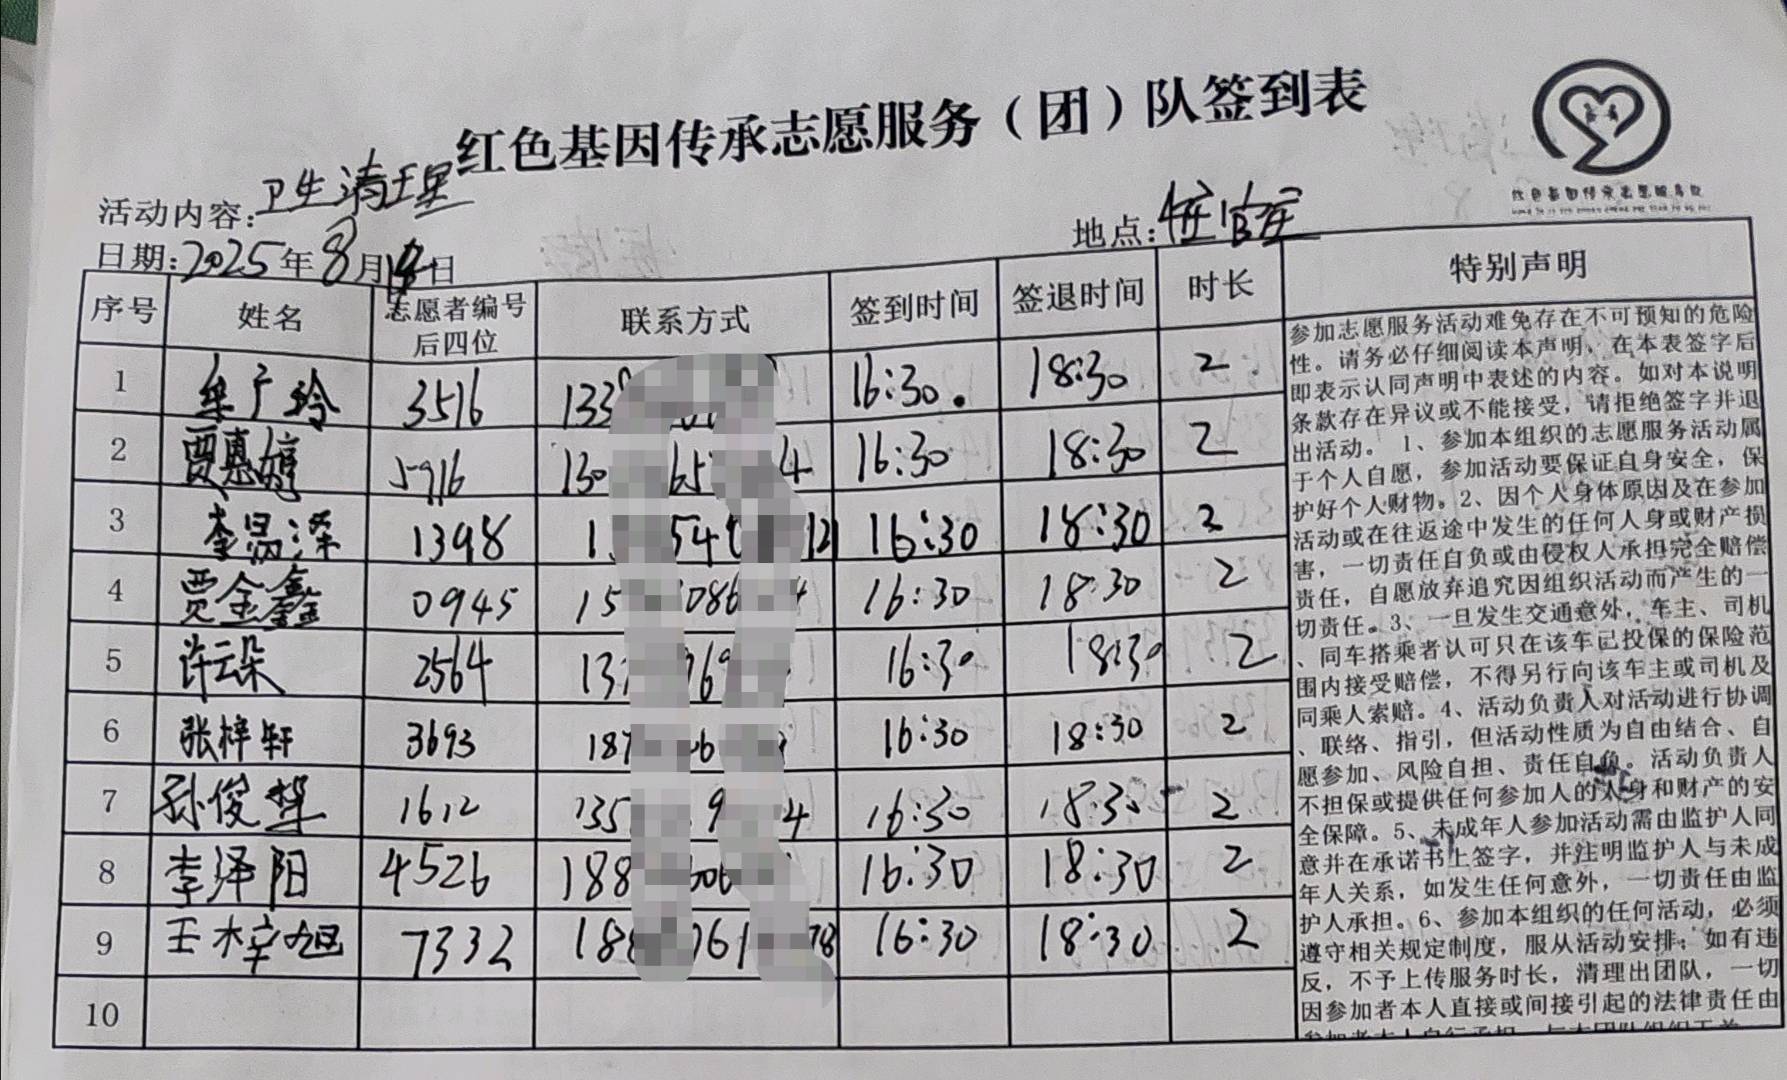 红色基因传承志愿服务（团）队签到表
红色基因传承志愿服务队
活动内容：卫生清理
地点：
日期：2025年8月日
序号 姓名 志愿者编号后四位 联系方式 签到时间 签退时间 时长 特别声明
1 广玲 3516 133 16:30. 18:30 2
2 贾惠婷 5916 130 65 4 16:30 18:30 2
3 李昺泽 1398 1 540 12 16:30 18:30 2
4 贾金鑫 0945 15 086 4 16:30 18:30 2
5 许云朵 2564 137 969 16:30 18:30 2
6 张梓轩 3693 187 06 16:30 18:30 2
7 孙俊 1612 135 9 4 16:30 18:30 2
8 李泽阳 4526 188 306 16:30 18:30 2
9 王梓旭 7332 188 761 78 16:30 18:30 2
10
参加志愿服务活动难免存在不可预知的危险
性。请务必仔细阅读本声明，在本表签字后
即表示认同声明中表述的内容。如对本说明
条款存在异议或不能接受，请拒绝签字并退
出活动。 1、参加本组织的志愿服务活动属
于个人自愿，参加活动要保证自身安全，保
护好个人财物。2、因个人身体原因及在参加
活动或在往返途中发生的任何人身或财产损
害，一切责任自负或由侵权人承担完全赔偿
责任，自愿放弃追究因组织活动而产生的一
切责任。3、一旦发生交通意外，车主、司机
、同车搭乘者认可只在该车已投保的保险范
围内接受赔偿，不得另行向该车主或司机及
同乘人索赔。4、活动负责人对活动进行协调
、联络、指引，但活动性质为自由结合、自
愿参加、风险自担、责任自负。活动负责人
不担保或提供任何参加人的人身和财产的安
全保障。5、未成年人参加活动需由监护人同
意并在承诺书上签字，并注明监护人与未成
年人关系，如发生任何意外，一切责任由监
护人承担。6、参加本组织的任何活动，必须
遵守相关规定制度，服从活动安排；如有违
反，不予上传服务时长，清理出团队，一切
因参加者本人直接或间接引起的法律责任由